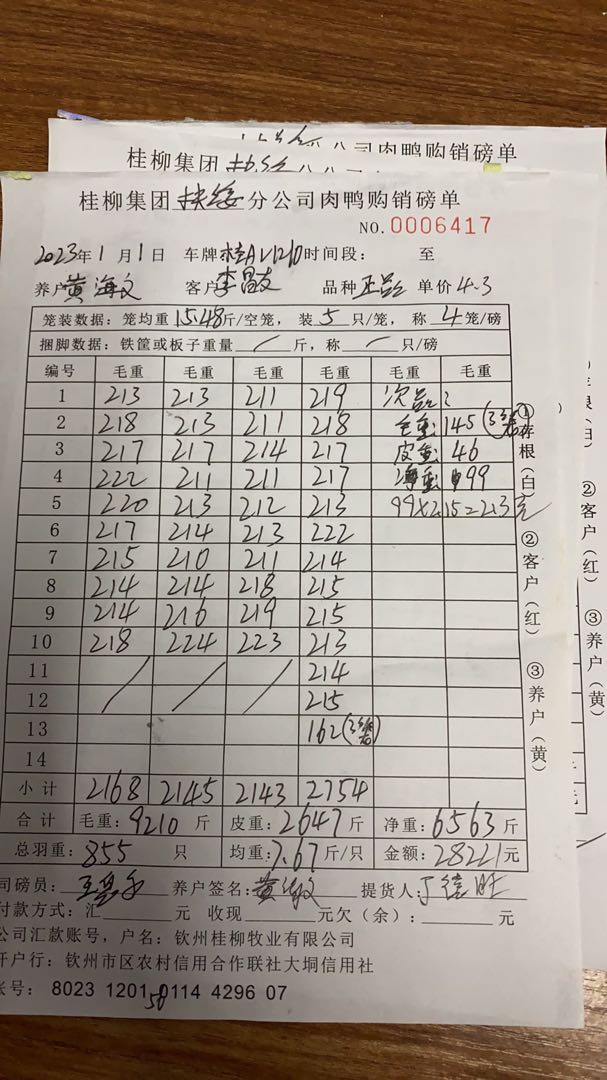 公司肉鸭购销磅单
桂柳集团 扶绥 分公司肉鸭购销磅单
桂柳集团 扶绥 分公司肉鸭购销磅单
NO. 0006417
2023年 1 月 1 日 车牌 时间段： 至
养户 黄海文 客户 李昌友 品种 正品 单价 4.3
笼装数据：笼均重 15.48 斤/空笼，装 5 只/笼，称 4 笼/磅
捆脚数据：铁筐或板子重量 / 斤，称 / 只/磅
编号 毛重 毛重 毛重 毛重 毛重 毛重
1 213 213 211 219 次品：
2 218 213 211 218 毛重 145 (3笼)
3 217 217 214 217 皮重 46
4 222 211 211 217 净重 99
5 220 213 212 213 99×2.15=213元
6 217 214 213 222
7 215 210 211 214
8 214 214 218 215
9 214 216 219 215
10 218 224 223 213
11 / / / 214
12 215
13 162 (3笼)
14
小计 2168 2145 2143 2754
合计 毛重：9210 斤 皮重：2647 斤 净重：6563 斤
总羽重：855 只 均重：7.67 斤/只 金额：28221 元
司磅员： 养户签名：黄海文 提货人：丁德旺
付款方式：汇 元 收现 元欠（余）： 元
公司汇款账号，户名：钦州桂柳牧业有限公司
开户行：钦州市区农村信用合作联社大垌信用社
账号： 8023 1201 50 0114 4296 07
①存根（白）
②客户（红）
③养户（黄）
②客户（红）
③养户（黄）